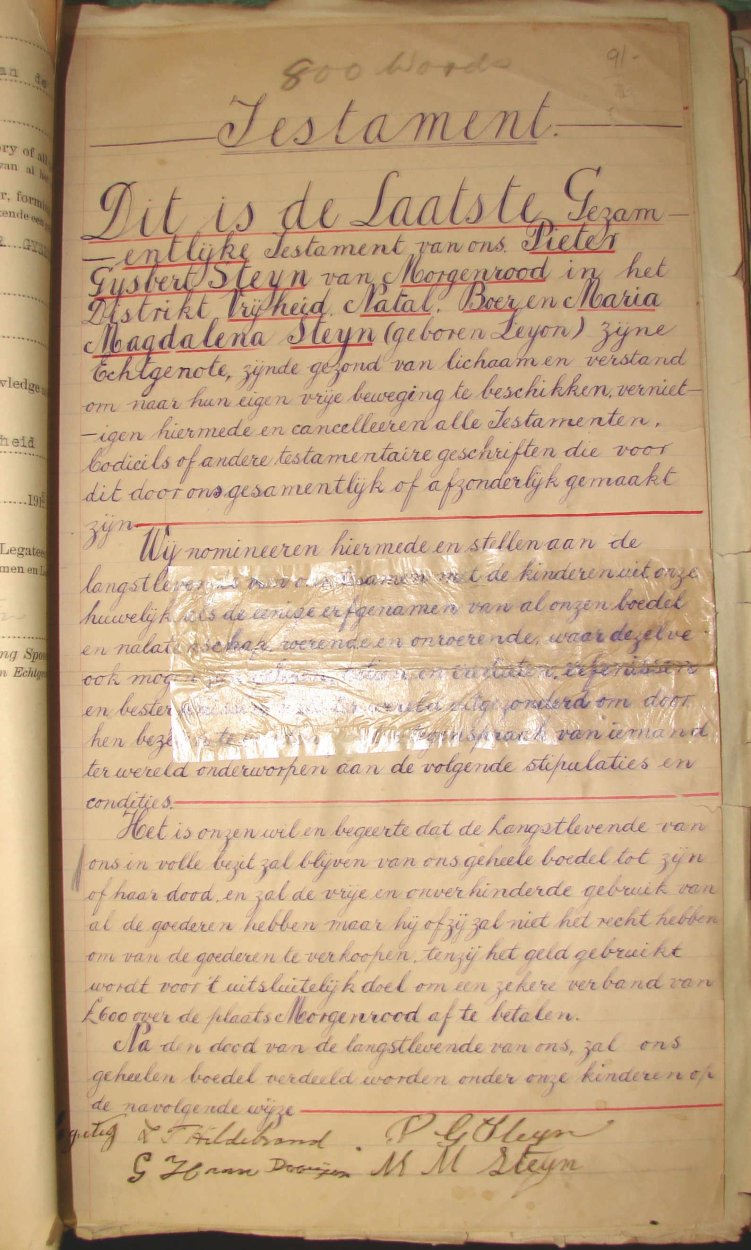 800 Words
91-
Testament.
Dit is de Laatste Gezam-
-entlijke Testament van ons. Pieter
Gysbert Steyn van Morgenrood in het
Distrikt Vrijheid, Natal, Boer en Maria
Magdalena Steyn (geboren Leyon) zijne
Echtgenote, zijnde gezond van lichaam en verstand
om naar hun eigen vrije beweging te beschikken, verniet-
-igen hiermede en cancelleeren alle Testamenten,
Codicils of andere testamentaire geschriften die voor
dit door ons gesamentlijk of afzonderlijk gemaakt
zijn.
Wij nomineeren hiermede en stellen aan de
langstlevende van ons tesamen met de kinderen uit onze
huwelijk als de eenige erfgenamen van al onzen boedel
en nalatenschap, roerende en onroerende, waar dezelve
ook mogen en erfenissen
en wereld uitgezonderd om door
hen te van iemand
ter wereld onderworpen aan de volgende stipulaties en
condities.
Het is onzen wil en begeerte dat de Langstlevende van
ons in volle bezit zal blijven van ons geheele boedel tot zijn
of haar dood, en zal de vrije en onverhinderde gebruik van
al de goederen hebben maar hij of zij zal niet het recht hebben
om van de goederen te verkoopen, tenzij het geld gebruikt
wordt voor 't uitsluitelijk doel om een zekere verband van
£600 over de plaats Morgenrood af te betalen.
Na den dood van de langstlevende van ons, zal ons
geheelen boedel verdeeld worden onder onze kinderen op
de navolgende wijze
Hildebrand P G Steyn
G H van Rooijen M M Steyn